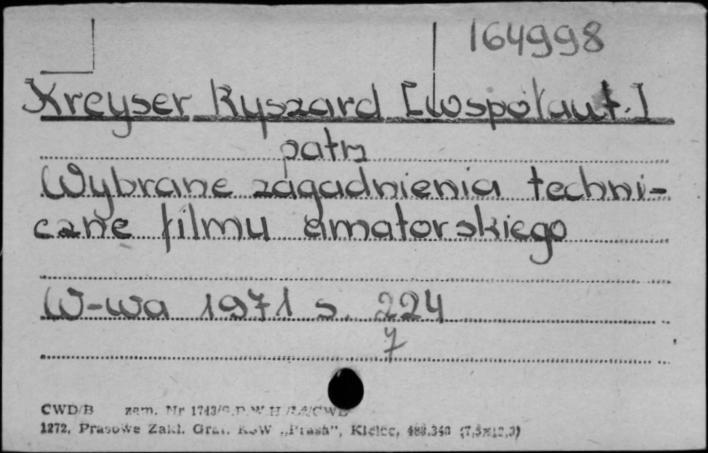 164998
Kreyser Ryszard [współaut.]
patrz
Wybrane zagadnienia techni-
czne filmu amatorskiego
W-wa 1971 s. 224
7
CWD/B zam. Nr 1743/
1272, Prasowe Zakł. Graf. RSW „Prasa”, Kielce,